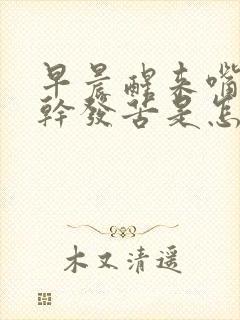 早晨醒来嘴
幹發苦是怎
木又清遥